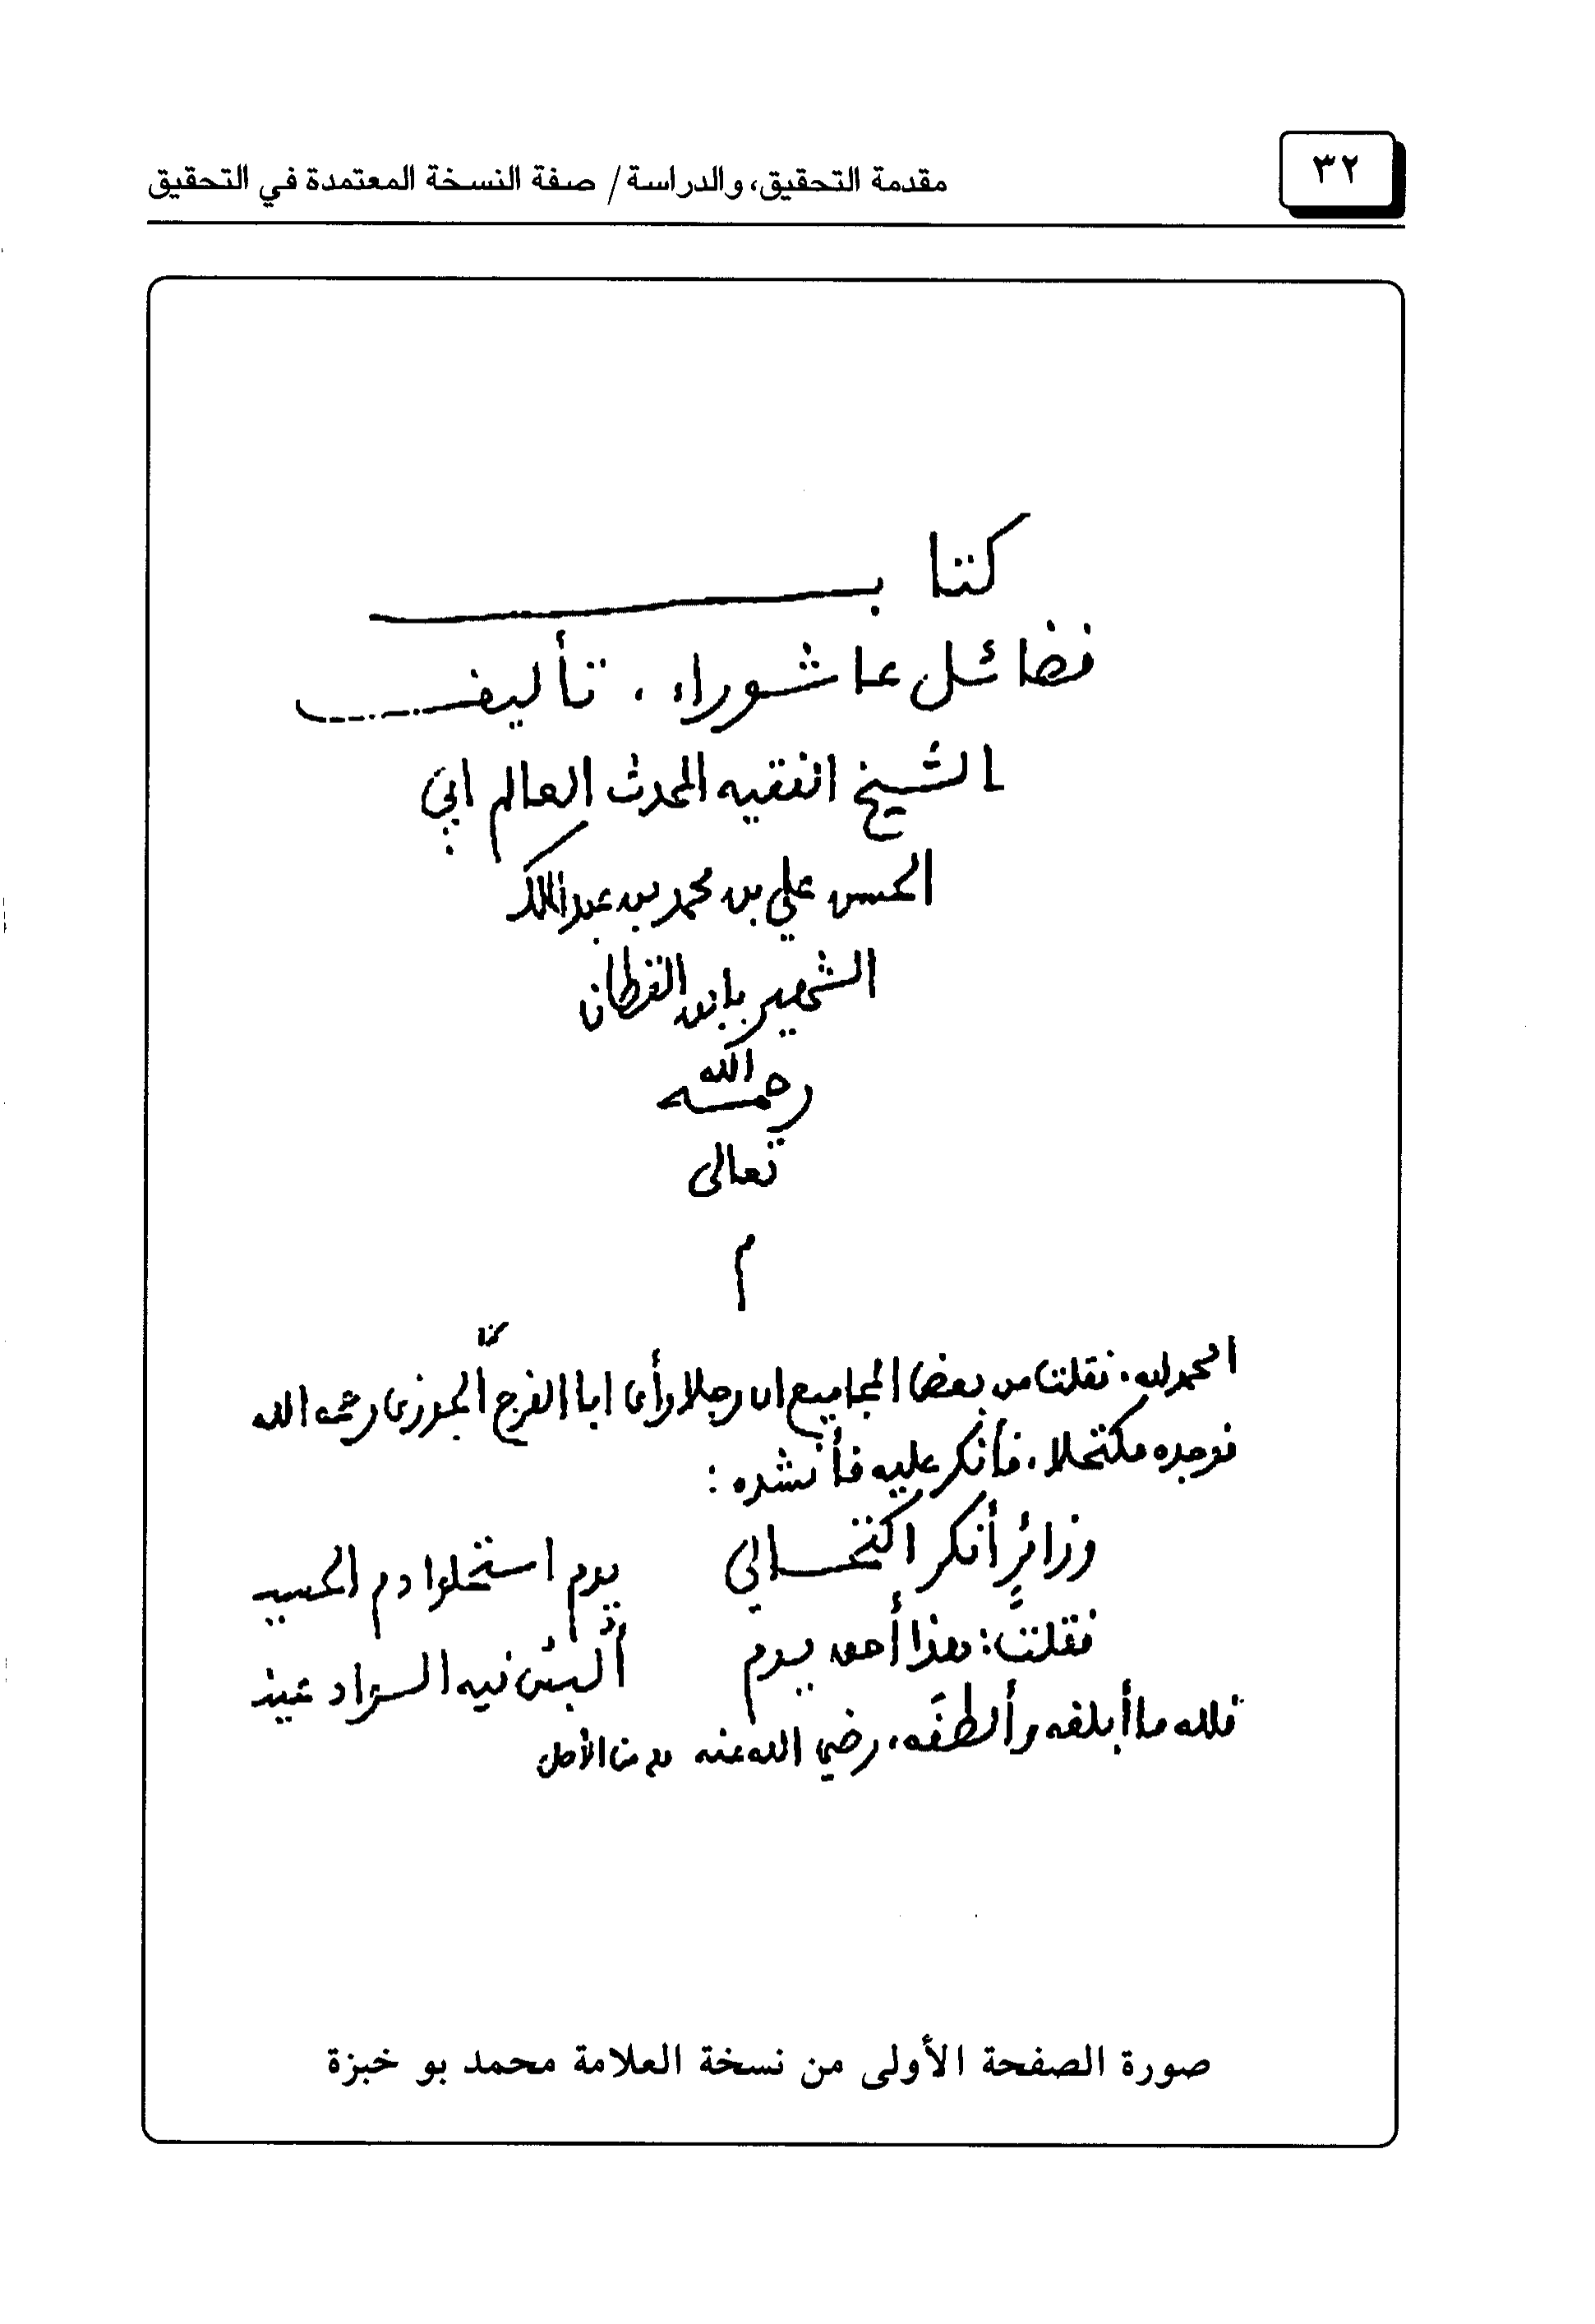 ٣٢
مقدمة التحقيق، والدراسة / صفة النسخة المعتمدة في التحقيق
كتاب
فضائل عاشوراء، تأليف
الشيخ الفقيه المحدث العالم ابي
الحسن علي بن محمد بن عبد الملك
الشهير بابن القطان
رحمه الله
تعالى
م
كذا
الحمد لله. نقلت من بعض المجاميع ان رجلا رأى ابا الفرج الجوزي رحمه الله
فوجده مكتحلا، فأنكر عليه فأنشده:
وزائرٍ أنكر اكتحالي يوم استحلوا دم الحسين
فقلت: هذا أحق يوم ألبسُ فيه السواد عيني
فلله ما أبلغه وألطفَه، رضي الله عنه من الأصل
صورة الصفحة الأولى من نسخة العلامة محمد بو خبزة